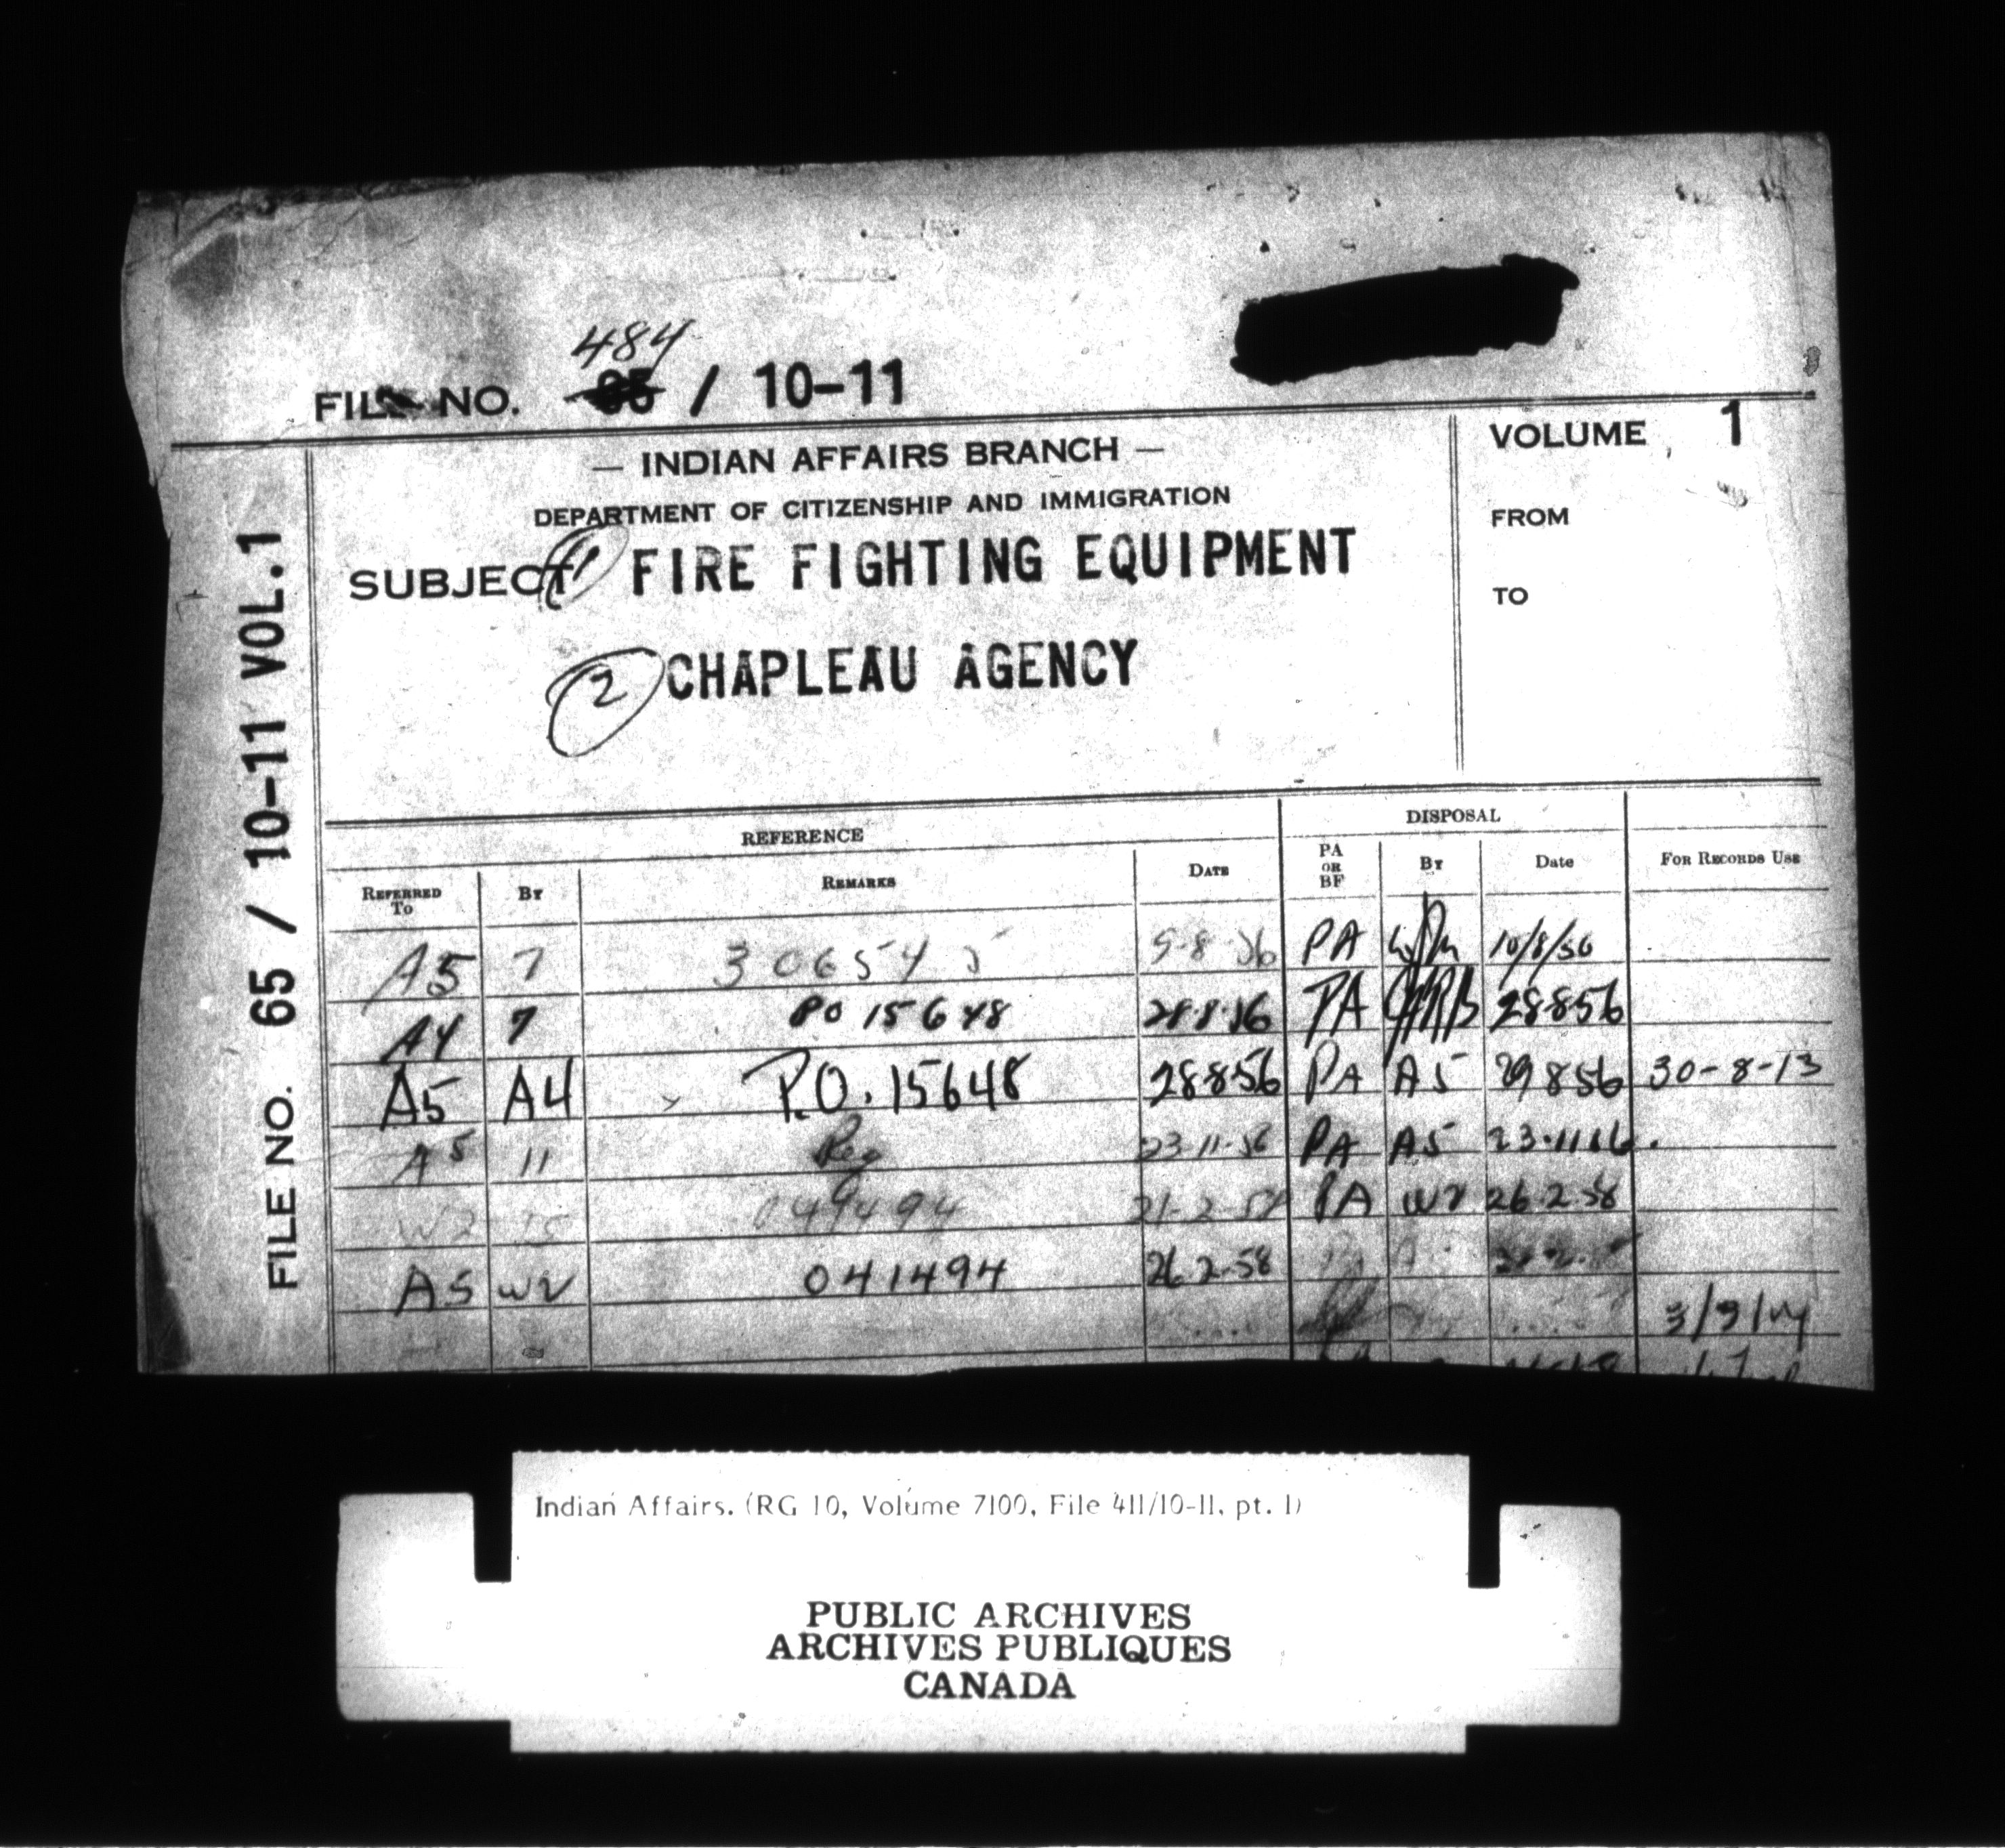 484
FILE NO. 65 / 10-11
— INDIAN AFFAIRS BRANCH —
DEPARTMENT OF CITIZENSHIP AND IMMIGRATION
SUBJECT (1) FIRE FIGHTING EQUIPMENT
(2) CHAPLEAU AGENCY
VOLUME 1
FROM
TO
FILE NO. 65 / 10-11 VOL.1
REFERENCE
DISPOSAL
REFERRED TO
BY
REMARKS
DATE
PA OR BF
BY
DATE
FOR RECORDS USE
A5 7 306545 PA 10/8/56
A4 7 PO 15648 28-8-56 PA 28856
A5 A4 P.O. 15648 28856 PA A5 29856 30-8-13
A5 11 Reg 23-11-56 PA A5 23-11
W2 15 PA W2 26-2-58
A5 W2 041494 26-2-58
Indian Affairs. (RG 10, Volume 7100, File 411/10-11, pt. 1)
PUBLIC ARCHIVES
ARCHIVES PUBLIQUES
CANADA